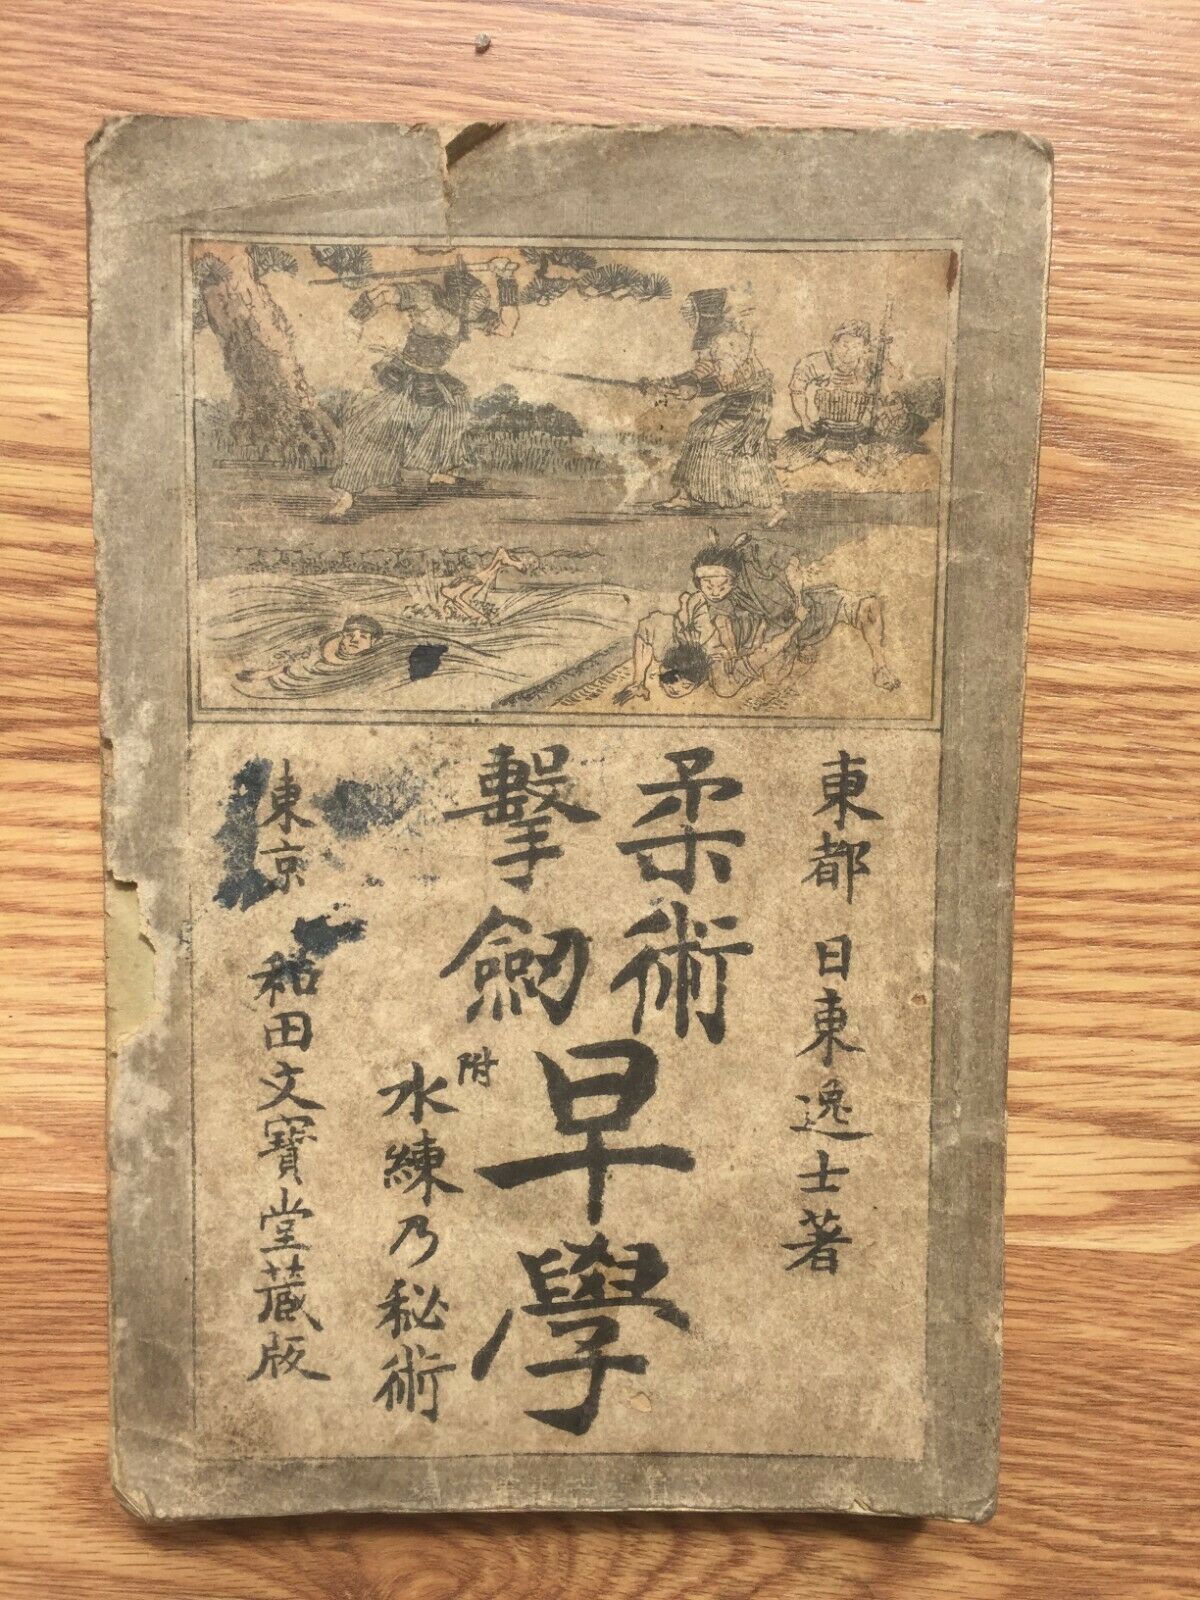 東都 日東逸士著
柔術
擊劔
早學
附
水練乃秘術
東京 和田文寳堂蔵版